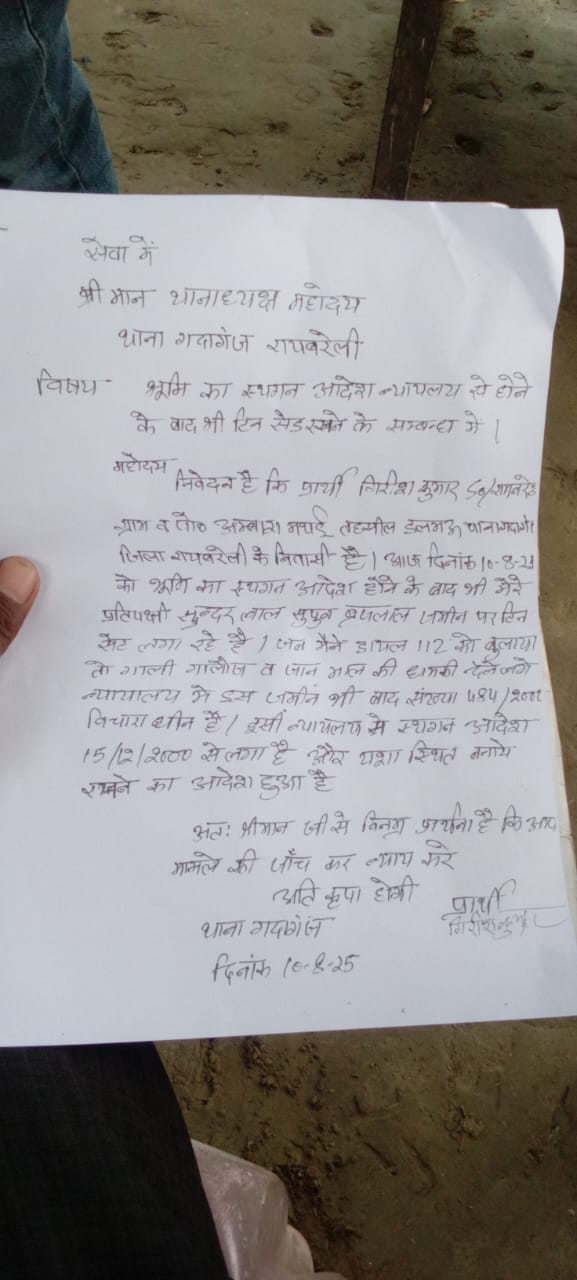 सेवा में
श्रीमान थानाध्यक्ष महोदय
थाना गदागंज रायबरेली
विषय- भूमि का स्थगन आदेश न्यायलय से होने
के बाद भी टिन सेड रखने के सम्बन्ध मे |
महोदय
निवेदन है कि प्रार्थी गिरीश कुमार S0/
ग्राम व पो० अम्बारा मथई तहसील डलमऊ थाना गदागंज
जिला रायबरेली के निवासी है | आज दिनांक 10-8-25
को भूमि का स्थगन आदेश होने के बाद भी मेरे
प्रतिपक्षी सुन्दर लाल सुपुत्र जमीन पर टिन
सेट लगा रहे है | जब मैने डायल 112 को बुलाया
तो गाली गालौज व जान माल की धमकी देने लगे
न्यायालय मे इस जमीन भी बाद संख्या 484/2000
विचाराधीन है / इसी न्यायलय मे स्थगन आदेश
15/12/2000 से लगा है और यथा स्थित बनाये
रखने का आदेश हुआ है
अंतः श्रीमान जी से विनम्र प्रार्थना है कि आप
मामले की जाँच कर न्याय करे
अति कृपा होगी
प्रार्थी
गिरीश कुमार
थाना गदागंज
दिनांक 10-8-25